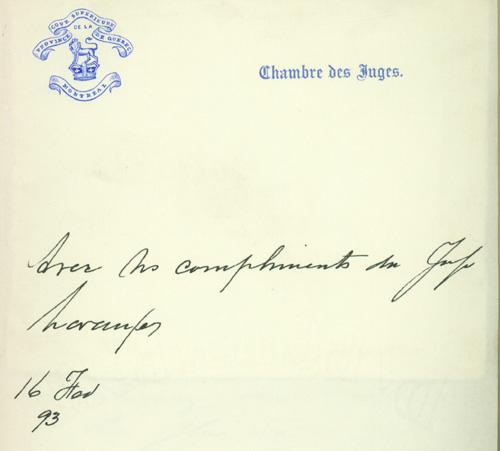 COUR SUPÉRIEURE
DE LA
PROVINCE DE QUEBEC
MONTREAL
Chambre des Juges.
Avec les compliments du Juge
16
93